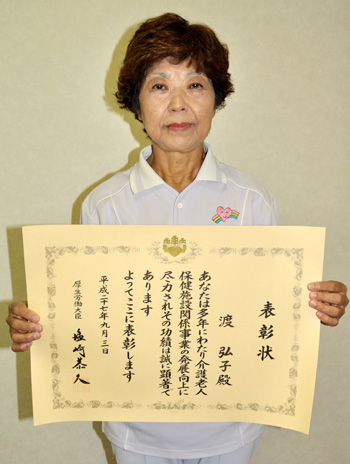 表彰状
渡　弘子殿
あなたは多年にわたり介護老人
保健施設関係事業の発展向上に
尽力されその功績は誠に顕著で
あります
よってここに表彰します
平成二十七年九月三日
厚生労働大臣
塩崎恭久